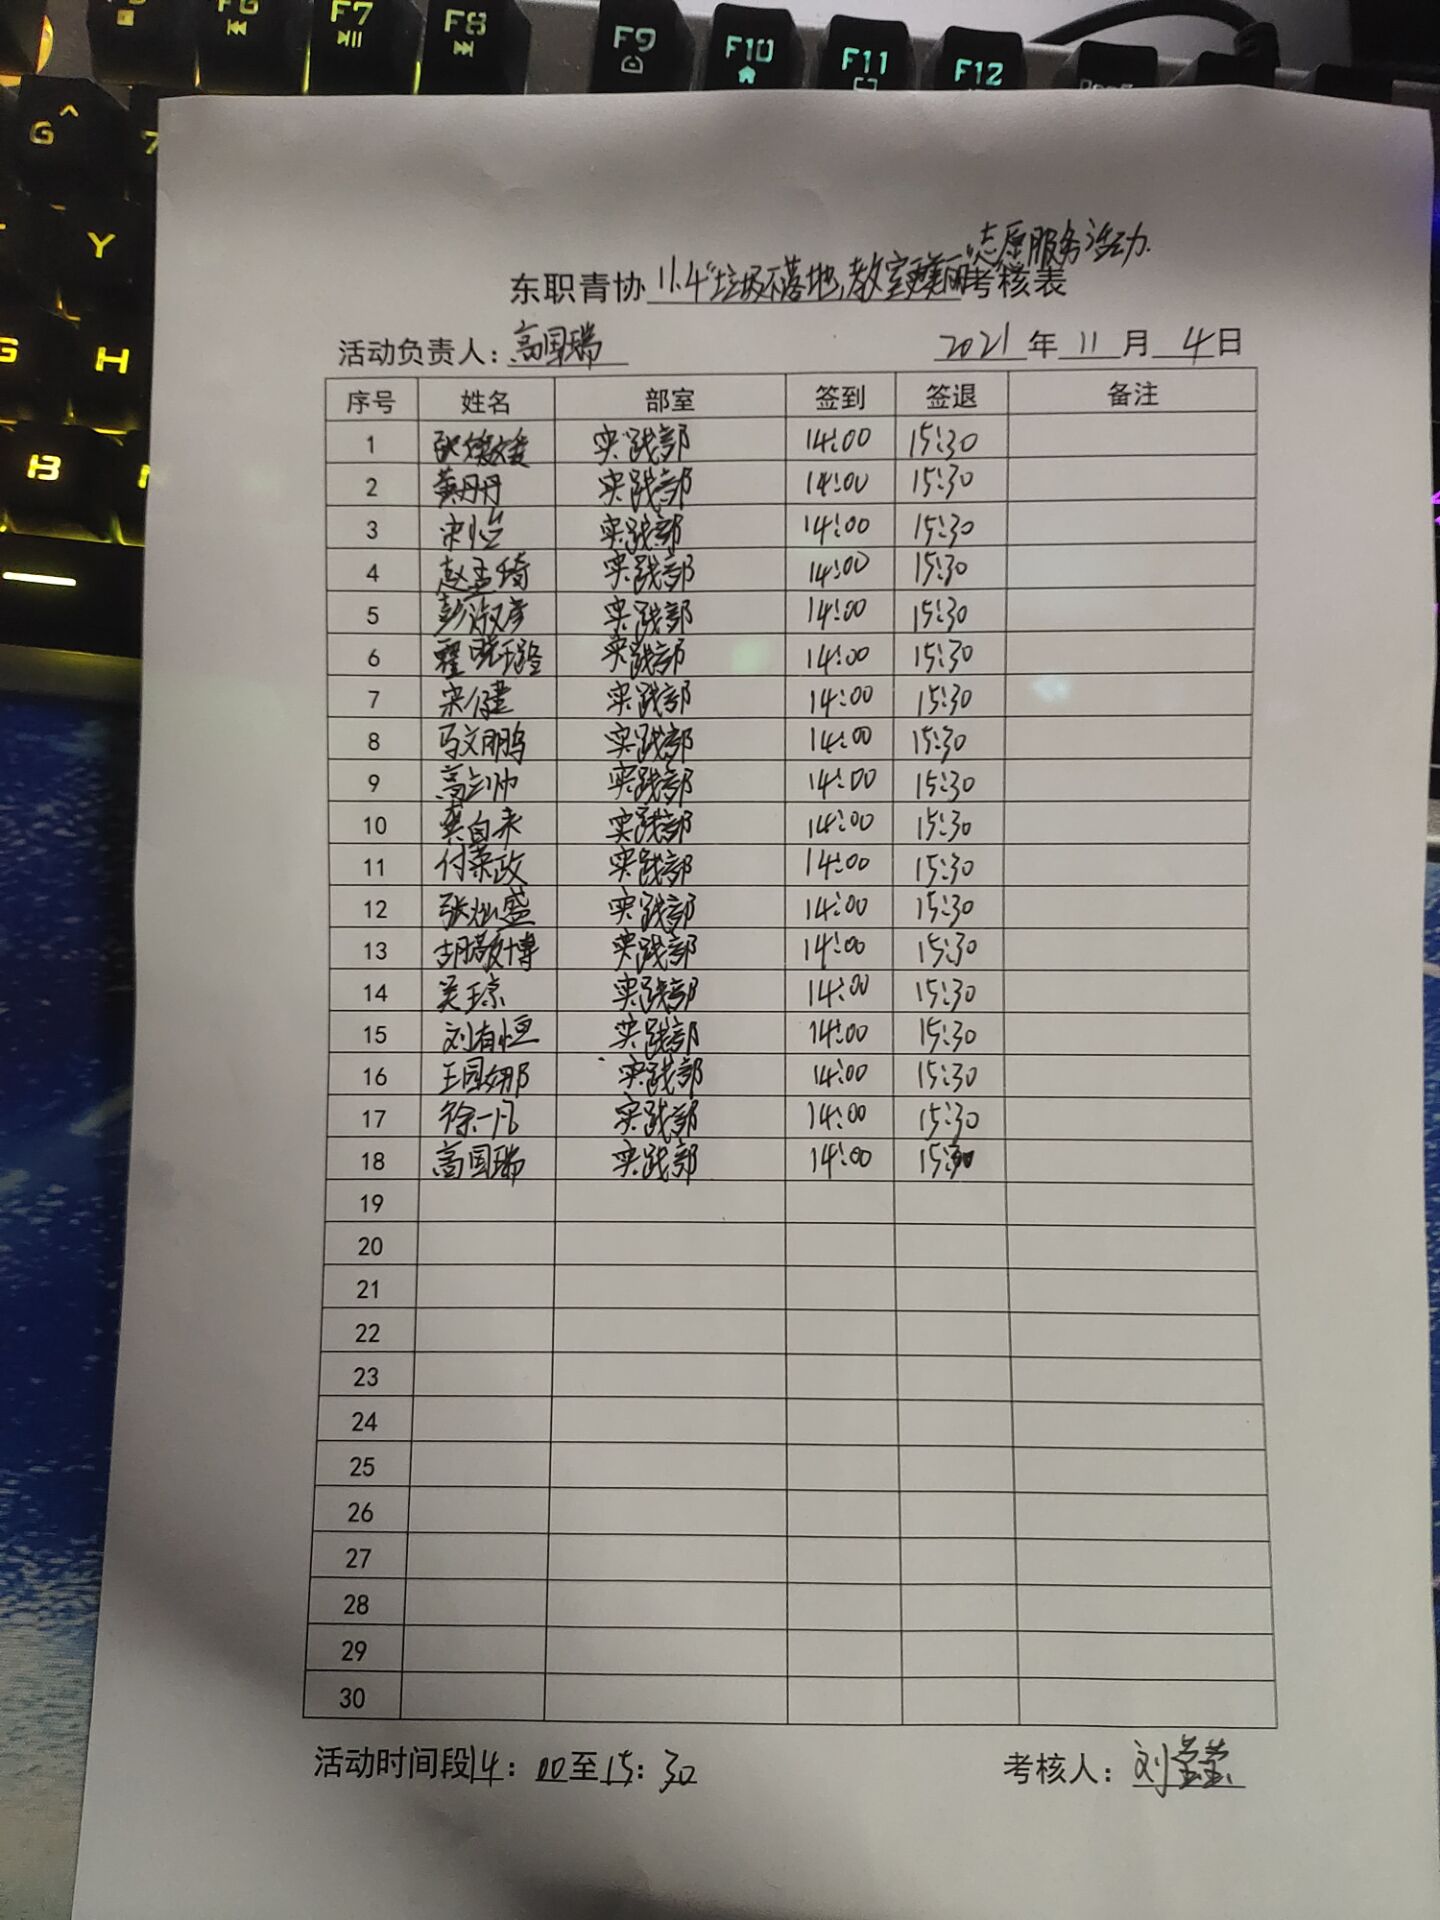 F6
F7
F8
F9
F10
F11
F12
G
7
Y
G H
B
东职青协 11.4"垃圾不落地,教室更美丽"志愿服务活动.考核表
活动负责人:高国瑞 2021年11月4日
序号 姓名 部室 签到 签退 备注
1 实践部 14:00 15:30
2 黄丹丹 实践部 14:00 15:30
3 宋 实践部 14:00 15:30
4 赵孟琦 实践部 14:00 15:30
5 彭淑彦 实践部 14:00 15:30
6 实践部 14:00 15:30
7 宋健 实践部 14:00 15:30
8 马文鹏 实践部 14:00 15:30
9 高帅 实践部 14:00 15:30
10 龚自来 实践部 14:00 15:30
11 付荣政 实践部 14:00 15:30
12 张灿盛 实践部 14:00 15:30
13 胡敬博 实践部 14:00 15:30
14 吴琼 实践部 14:00 15:30
15 刘有恒 实践部 14:00 15:30
16 王园娜 实践部 14:00 15:30
17 徐一凡 实践部 14:00 15:30
18 高国瑞 实践部 14:00 15:30
19
20
21
22
23
24
25
26
27
28
29
30
活动时间段14:00至15:30 考核人:刘莹莹